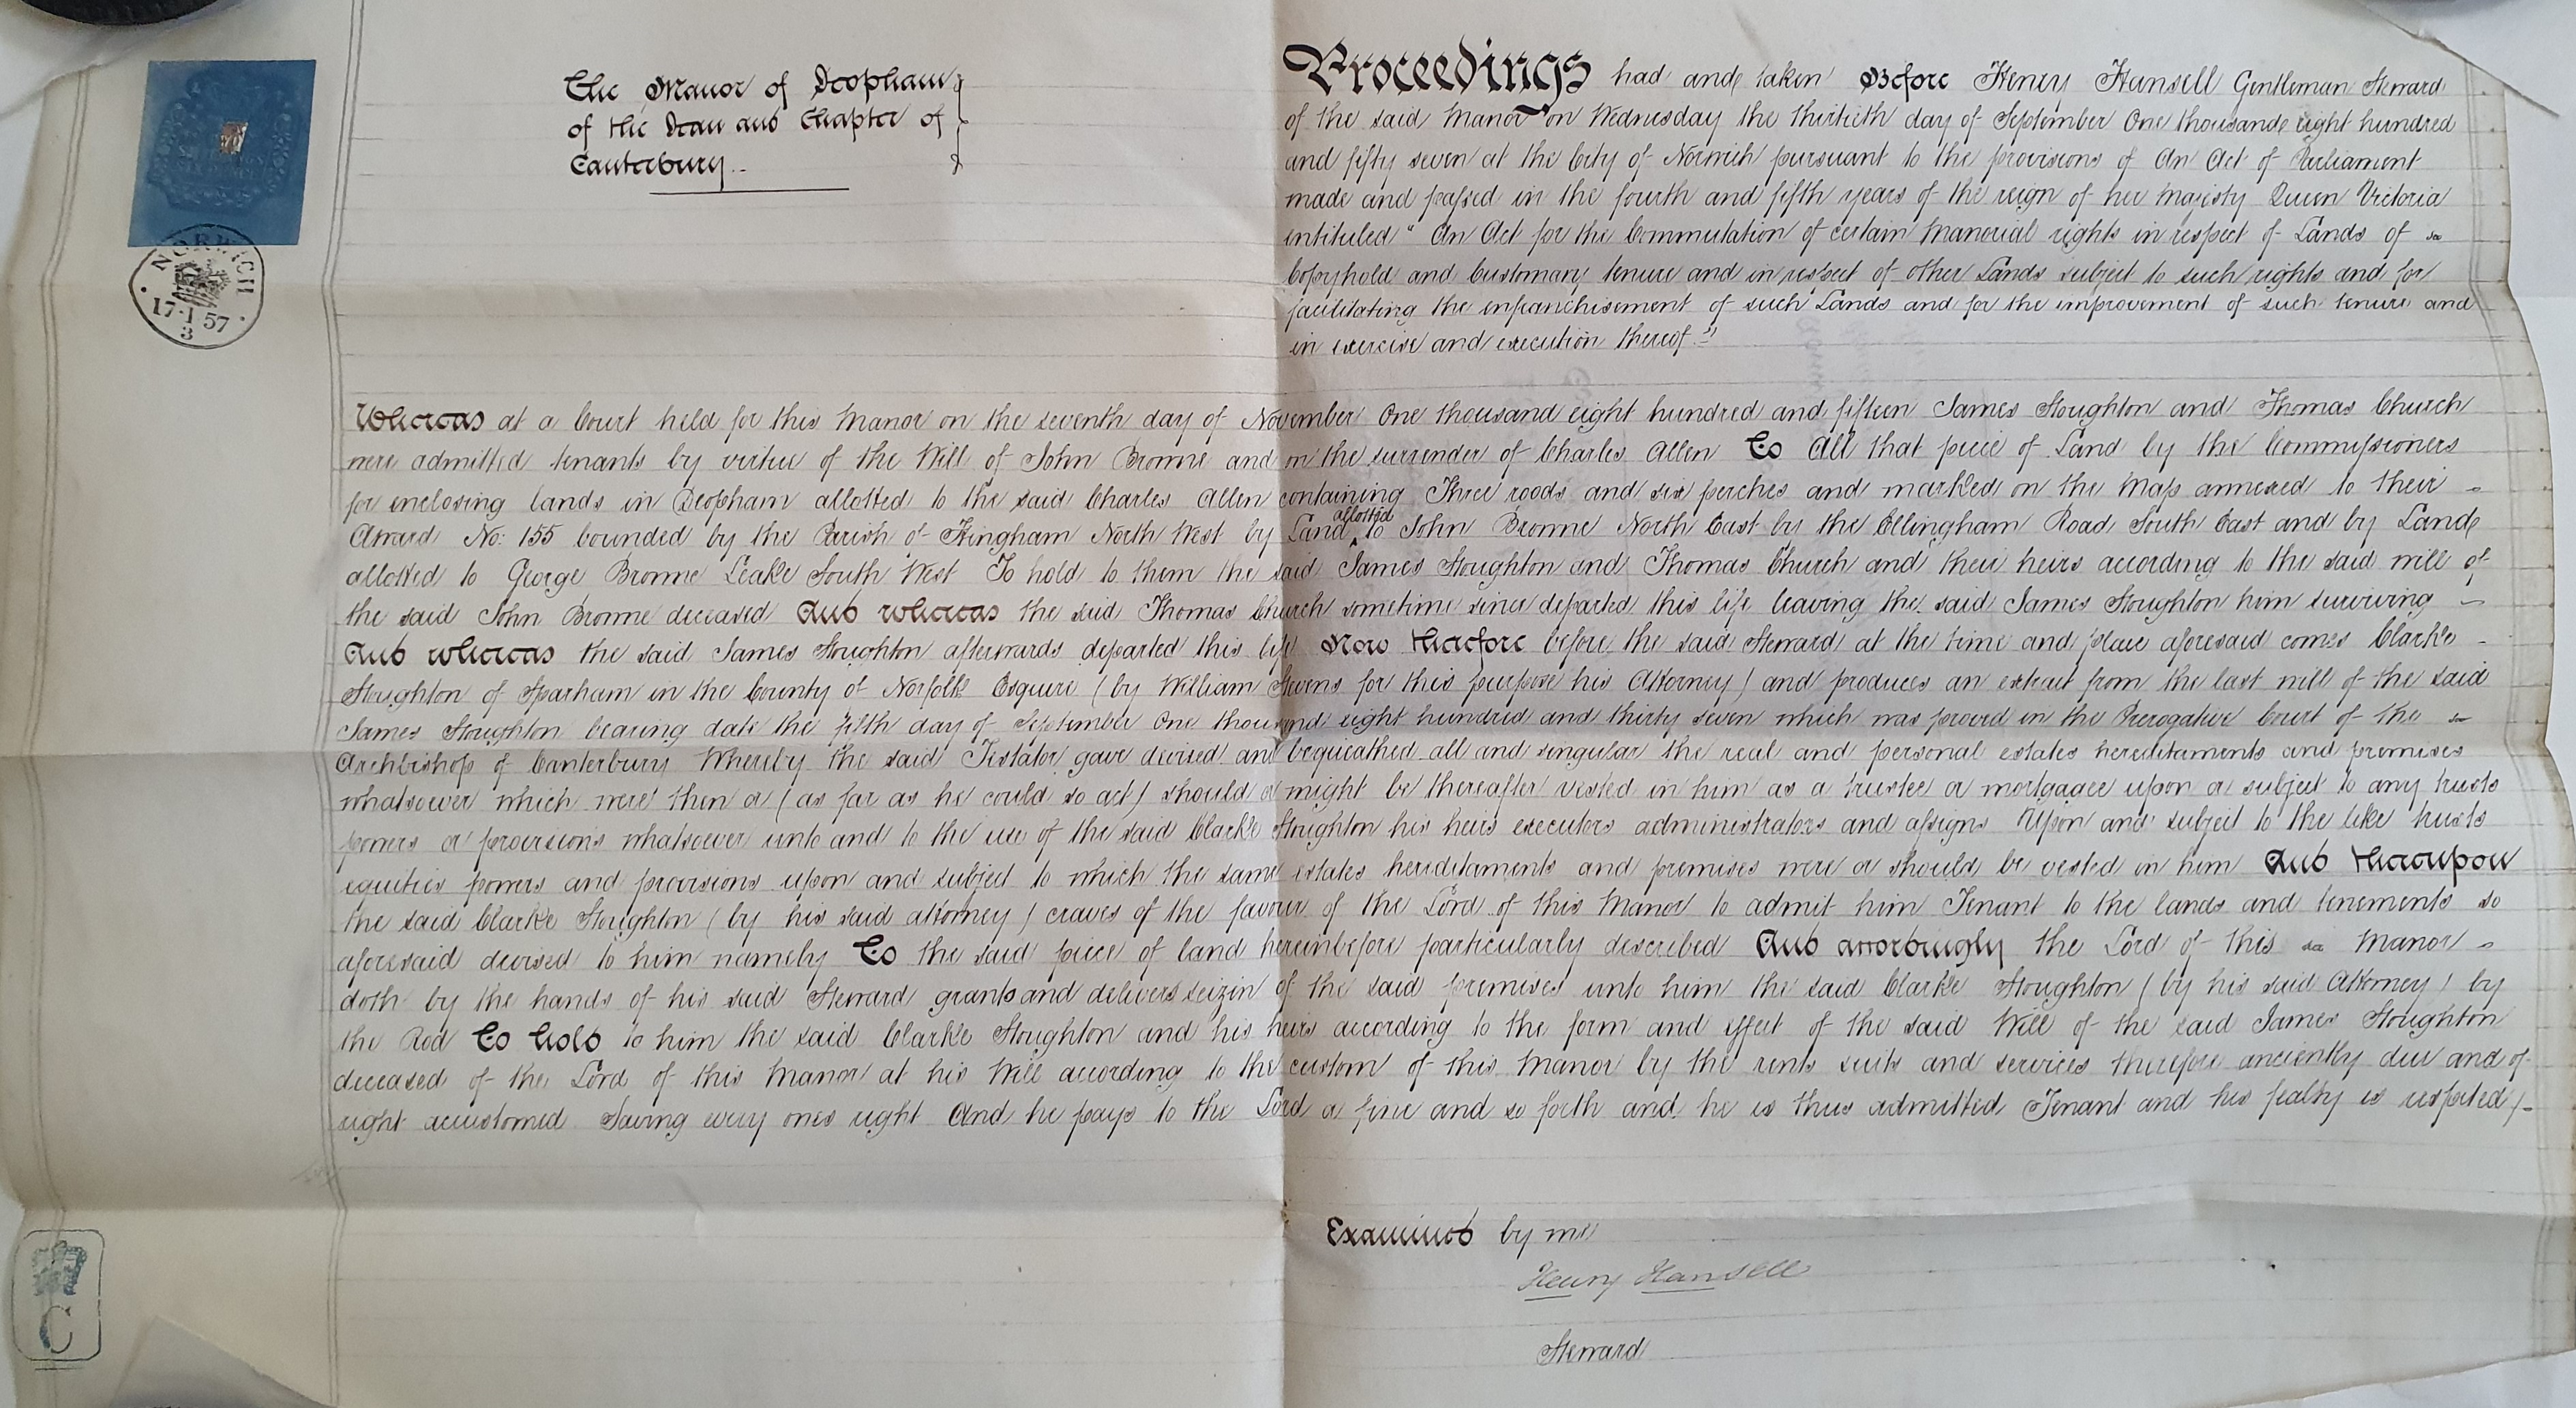 The Manor of Deopham
of the Dean and Chapter of
Canterbury
Proceedings had and taken Before Henry Hansell Gentleman Steward
of the said Manor on Wednesday the thirtieth day of September One thousand eight hundred
and fifty seven at the City of Norwich pursuant to the provisions of An Act of Parliament
made and passed in the fourth and fifth years of the reign of her Majesty Queen Victoria
intituled "An Act for the Commutation of certain Manorial rights in respect of Lands of
Copyhold and Customary tenure and in respect of other Lands subject to such rights and for
facilitating the enfranchisement of such Lands and for the improvement of such tenure and
in exercise and execution thereof"
NORWICH
17·1 57
3
Whereas at a Court held for this Manor on the seventh day of November One thousand eight hundred and fifteen James Stoughton and Thomas Church
were admitted tenants by virtue of the Will of John Browne and on the surrender of Charles Allen To All that piece of Land by the Commissioners
for enclosing lands in Deopham allotted to the said Charles Allen containing Three roods and six perches and marked on the Map annexed to their
Award No: 155 bounded by the Parish of Hingham North West by Land allotted to John Browne North East by the Ellingham Road South East and by Land
allotted to George Browne Leake South West To hold to them the said James Stoughton and Thomas Church and their heirs according to the said will of
the said John Browne deceased And whereas the said Thomas Church sometime since departed this life leaving the said James Stoughton him surviving
And whereas the said James Stoughton afterwards departed this life Now therefore before the said Steward at the time and place aforesaid comes Clarke
Stoughton of Sparham in the County of Norfolk Esquire (by William Stevens for this purpose his Attorney) and produces an extract from the last will of the said
James Stoughton bearing date the fifth day of September One thousand eight hundred and thirty seven which was proved in the Prerogative Court of the
Archbishop of Canterbury Whereby the said Testator gave devised and bequeathed all and singular the real and personal estates hereditaments and premises
whatsoever which were then or (as far as he could so act) should or might be thereafter vested in him as a trustee or mortgagee upon or subject to any trusts
powers or provisions whatsoever unto and to the use of the said Clarke Stoughton his heirs executors administrators and assigns Upon and subject to the like trusts
equities powers and provisions upon and subject to which the same estates hereditaments and premises were or should be vested in him And thereupon
the said Clarke Stoughton (by his said attorney) craves of the favour of the Lord of this Manor to admit him Tenant to the lands and tenements so
aforesaid devised to him namely To the said piece of land hereinbefore particularly described And accordingly the Lord of this Manor
doth by the hands of his said Steward grants and delivers seizin of the said premises unto him the said Clarke Stoughton (by his said Attorney) by
the Rod To hold to him the said Clarke Stoughton and his heirs according to the form and effect of the said Will of the said James Stoughton
deceased of the Lord of this Manor at his Will according to the custom of this Manor by the rents suits and services therefore anciently due and of
right accustomed Saving every ones right And he pays to the Lord a fine and so forth and he is thus admitted Tenant and his fealty is respited
Examined by me
Henry Hansell
Steward
C